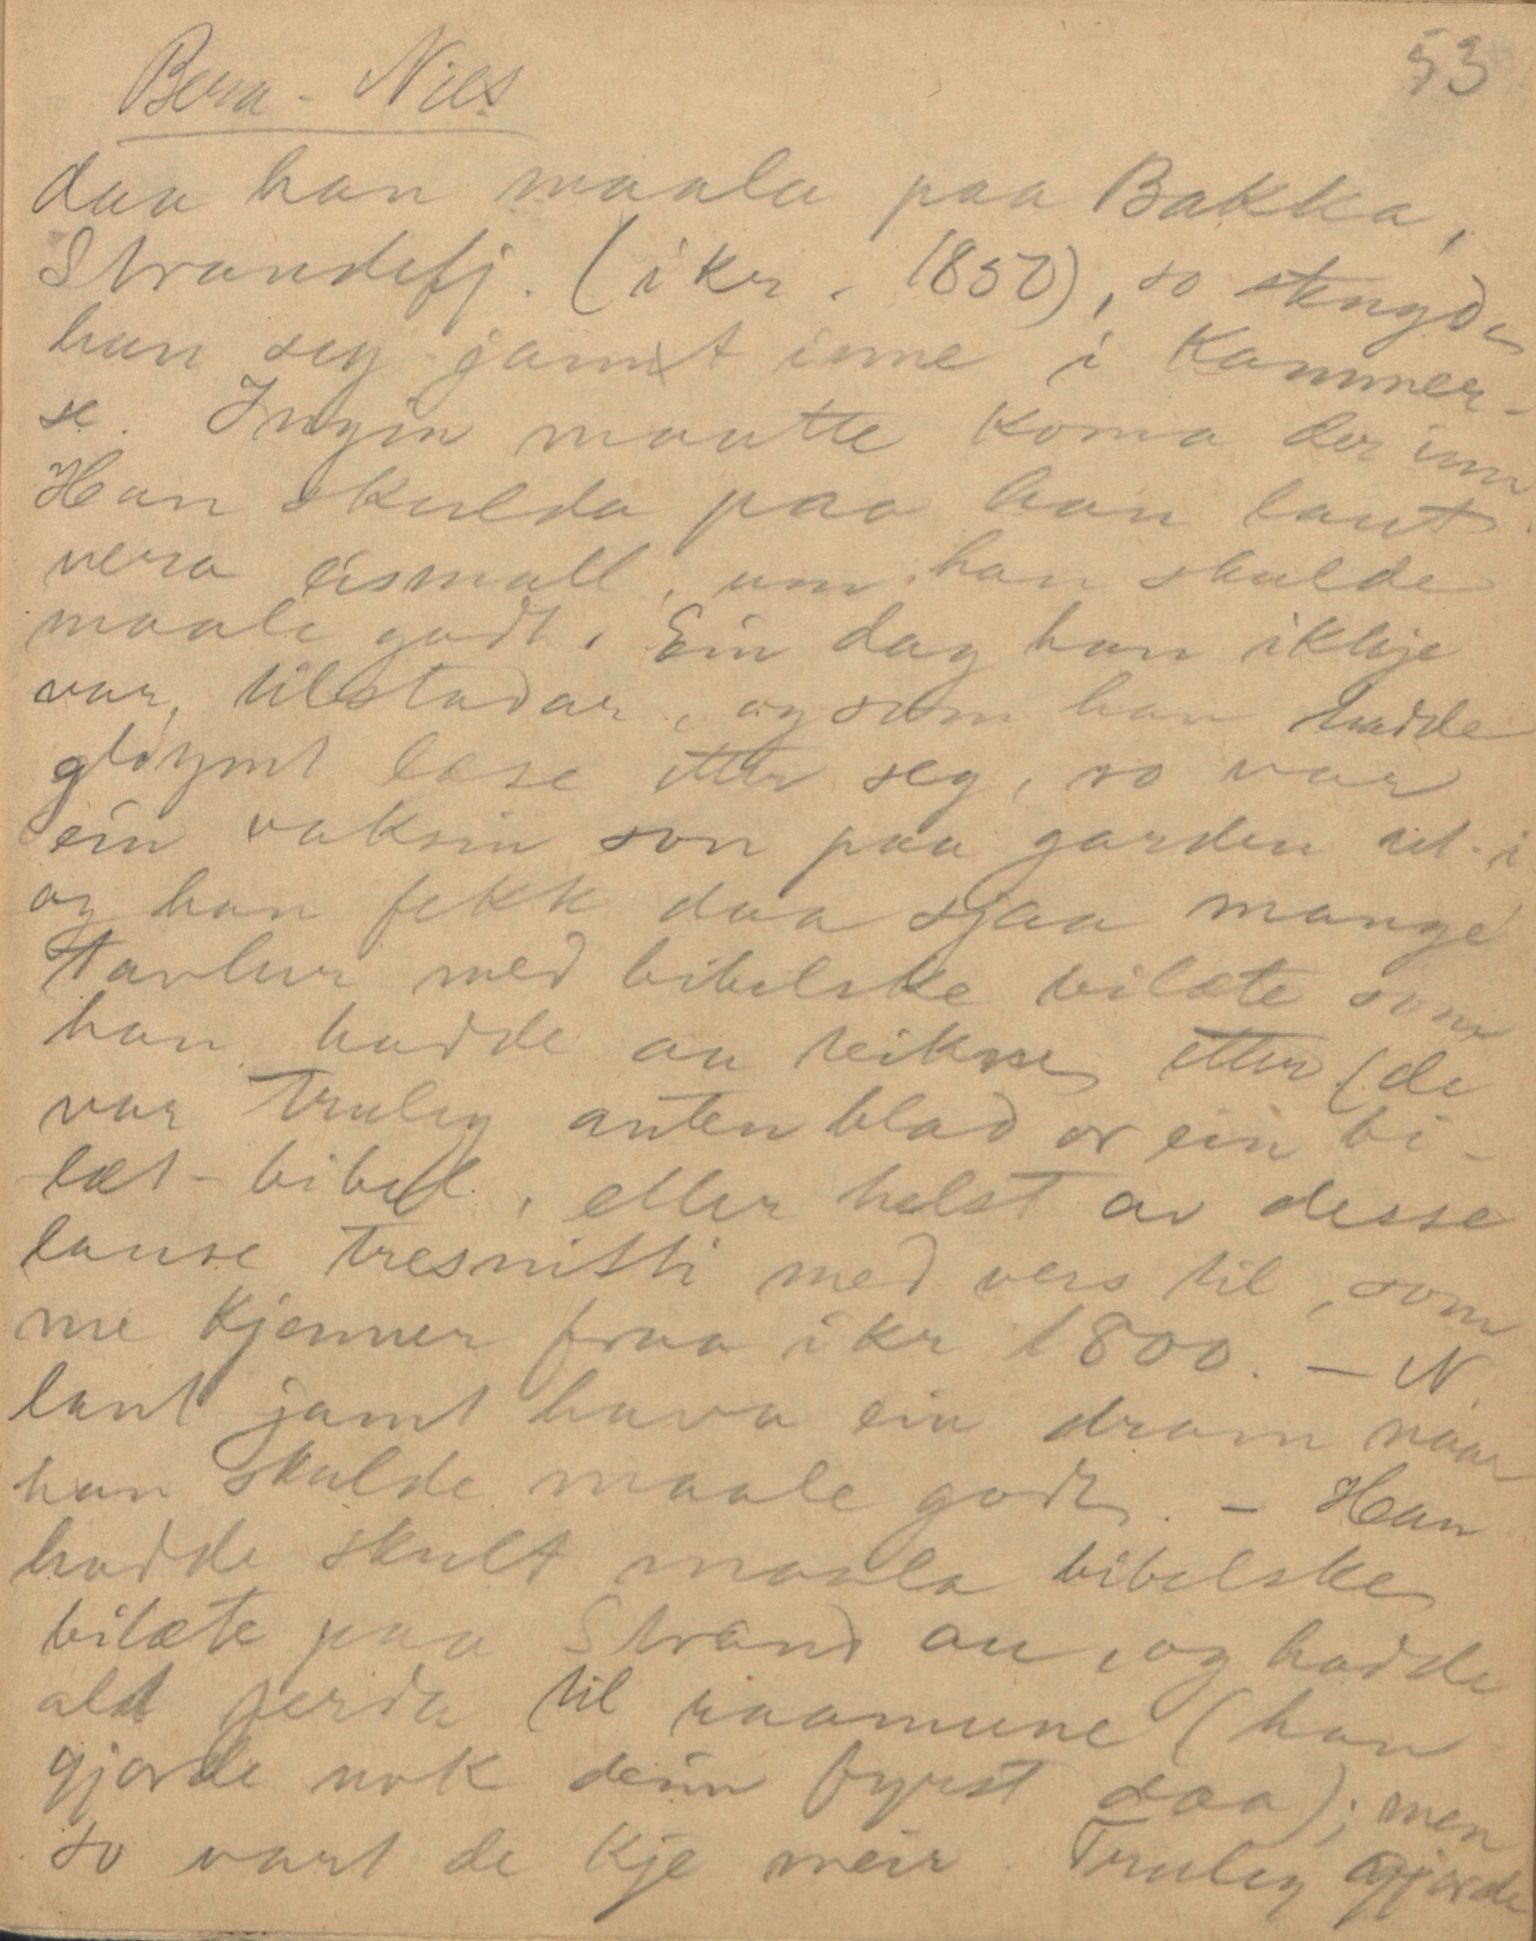 53
Bera - Nils
daa han maala paa Bakka,
Strandefj. (ikr. 1850), so stengde
han seg jamt inne i Kammer-
se. Ingin maatte koma der inn
Han skulda paa han laut
vera eismall, um han skulde
maale godt. Ein dag han ikkje
var tilstadar, og som han hadde
gløymt læse etter seg, so var
ein vaksin son paa garden
og han fekk daa sjaa mange
tavlur med bibelske bilæte som
han hadde aa teikne etter (de
var truleg anten blad or ein bi-
læt-bibel, eller helst av desse
lause tresnitti med vers til, som
me kjenner fraa ikr 1800. — N.
laut jamt hava ein dram naar
han skulde maale godt. — Han
hadde skult maala bibelske
bilæte paa Strand au, og hadde
alt gjerda til raamune (han
gjorde nok deim fyrst daa); men
so vart de kje meir. Truleg gjorde